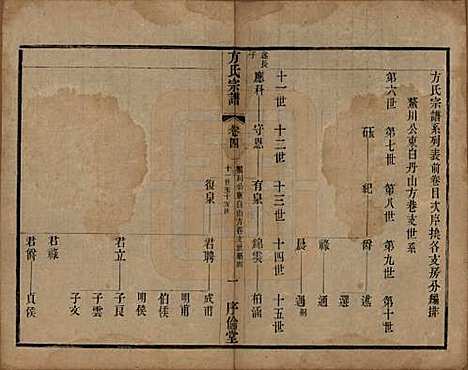 方氏宗譜系列表前卷目次序挨各支房分編排
鰲川公東白丹山方巷支世系
第六世 第七世 第八世 第九世 第十世
砥 杞 爵 述
還
祿 通
晨 通嗣
十一世 十二世 十三世 十四世 十五世
述長子
應科 守恩 有泉 錦雲 柏涵
方氏宗譜 卷四 一 序倫堂
復泉 君聘 成甫
明甫
伯侯
明侯
君立 子良
子雲
子文
君祿
君爵 貞侯